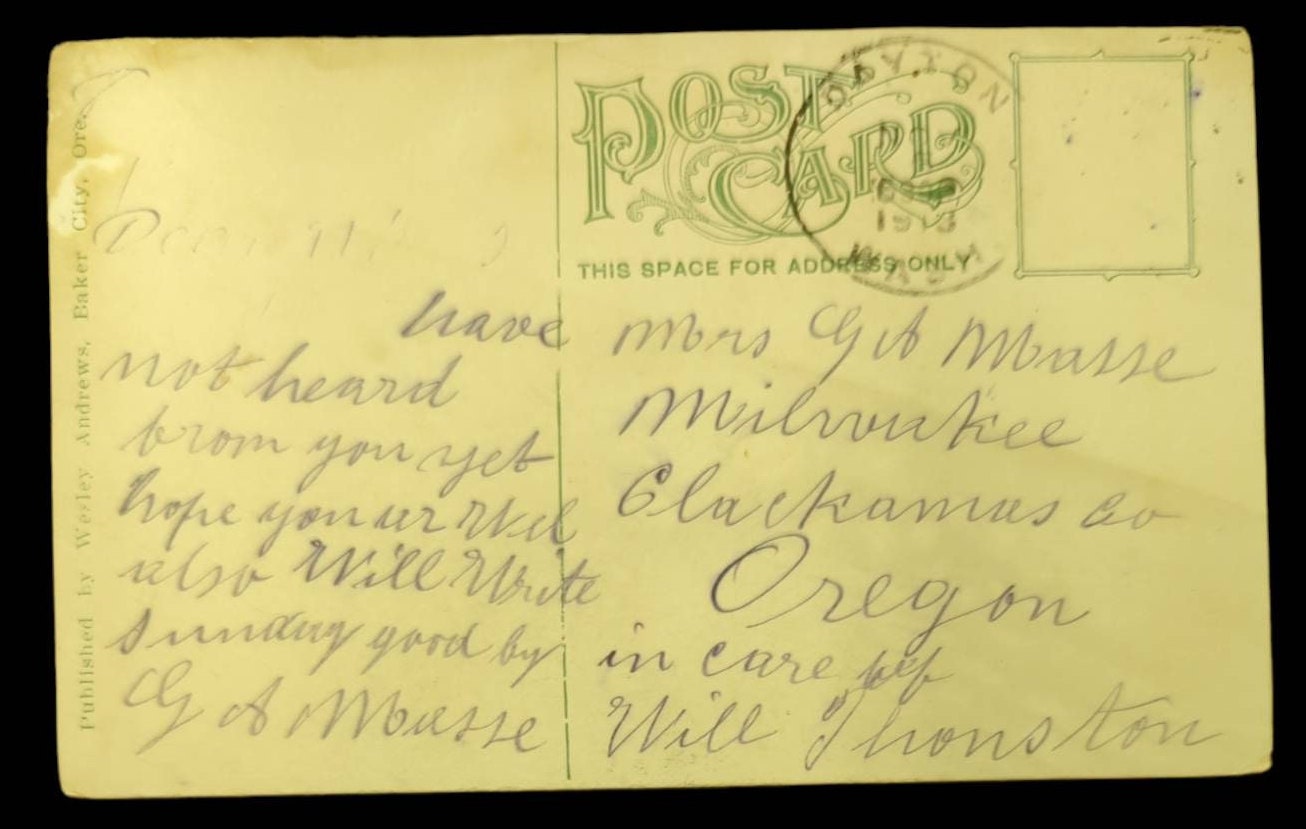 Published by Wesley Andrews, Baker City, Ore.
POST CARD
THIS SPACE FOR ADDRESS ONLY
DAYTON
1913
WASH
Dear
have
not heard
from you yet
hope you ar Well
also Will Write
Sunday good by
G A Masse
Mrs G A Masse
Milwukee
Clackamas Co
Oregon
in care of
Will Thonston